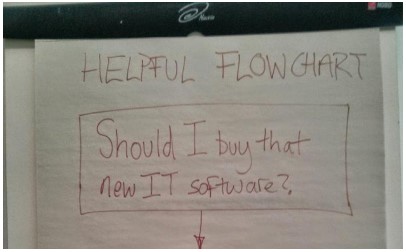 HELPFUL FLOWCHART
Should I buy that
new IT software?